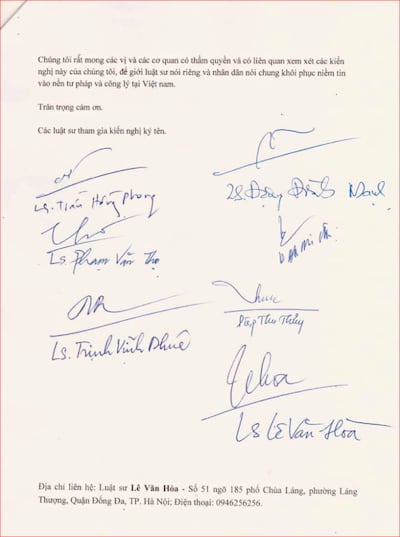 Chúng tôi rất mong các vị và các cơ quan có thẩm quyền và có liên quan xem xét các kiến
nghị này của chúng tôi, để giới luật sư nói riêng và nhân dân nói chung khôi phục niềm tin
vào nền tư pháp và công lý tại Việt nam.
Trân trọng cảm ơn.
Các luật sư tham gia kiến nghị ký tên.
Ls. Trần Hồng Phong
Ls. Đặng Đình Mạnh
Ls. Phạm Văn Thọ
Ls. Trịnh Vĩnh Phúc
Thu Thủy
LS Lê Văn Hòa
Địa chỉ liên hệ: Luật sư Lê Văn Hòa - Số 51 ngõ 185 phố Chùa Láng, phường Láng
Thượng, Quận Đống Đa, TP. Hà Nội; Điện thoại: 0946256256.